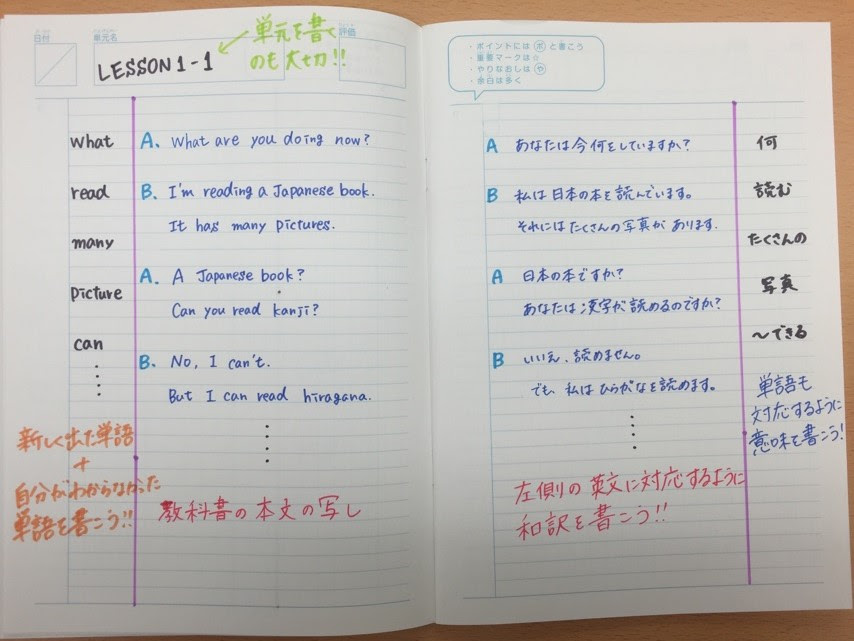 日付
単元名
評価
LESSON 1-1
単元を書く
のも大切!!
what
read
many
picture
can
A. What are you doing now?
B. I'm reading a Japanese book.
It has many pictures.
A. A Japanese book?
Can you read kanji?
B. No, I can't.
But I can read hiragana.
新しく出た単語
+
自分がわからなかった
単語を書こう!!
教科書の本文の写し
・ポイントには ポ と書こう
・重要マークは☆
・やりなおしは や
・余白は多く
A あなたは今何をしていますか?
B 私は日本の本を読んでいます。
それにはたくさんの写真があります.
A 日本の本ですか?
あなたは漢字が読めるのですか?
B いいえ、読めません。
でも、私はひらがなを読めます。
左側の英文に対応するように
和訳を書こう!!
何
読む
たくさんの
写真
〜できる
単語も
対応するように
意味を書こう!